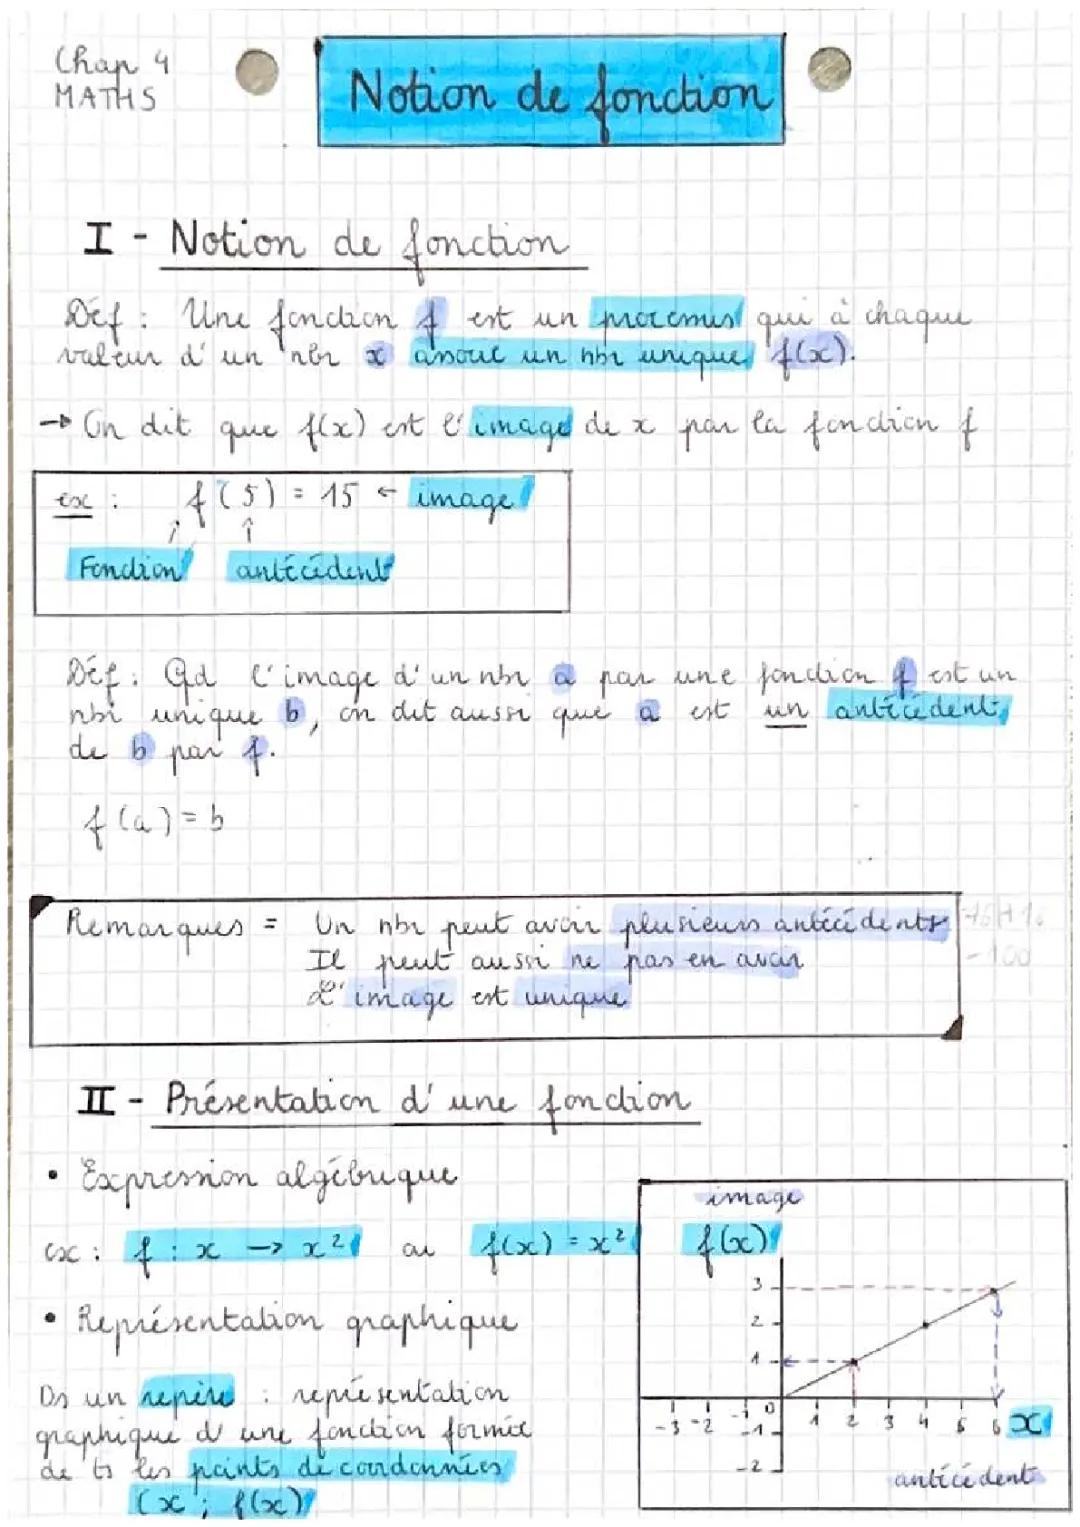 Chap 4
MATHS
Notion de fonction
I - Notion de fonction
Déf : Une fonction f est un processus qui à chaque
valeur d'un nbr x associe un nbr unique f(x).
→ On dit que f(x) est l'image de x par la fonction f
ex : f(5) = 15 ← image
↑ ↑
Fonction antécédent
Déf : Qd l'image d'un nbr a par une fonction f est un
nbr unique b, on dit aussi que a est un antécédent
de b par f.
f(a) = b
Remarques = Un nbr peut avoir plusieurs antécédents
Il peut aussi ne pas en avoir
L'image est unique
II - Présentation d'une fonction
• Expression algébrique
ex : f : x → x² ou f(x) = x²
• Représentation graphique
Ds un repère : représentation
graphique d'une fonction formée
de ts les points de coordonnées
(x ; f(x))
image
f(x)
3
2
1
-3 -2 -1 0 1 2 3 4 5 6 x
-1
-2
antécédent